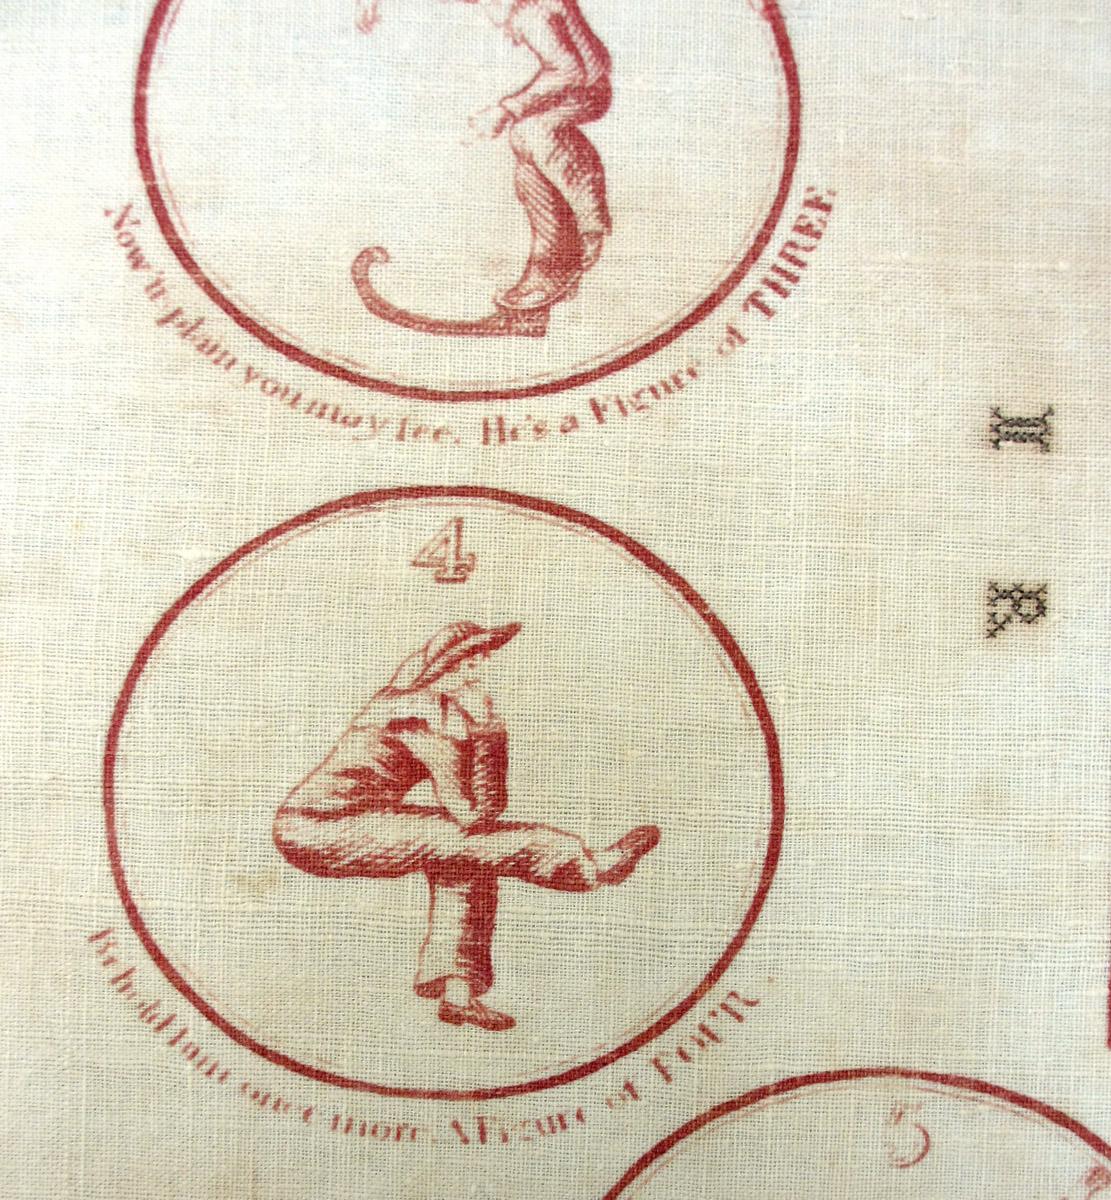 Now'tis plain you may ſee. He's a Figure of THREE
4
Behold I am once more. A Figure of FOUR
5
I
R